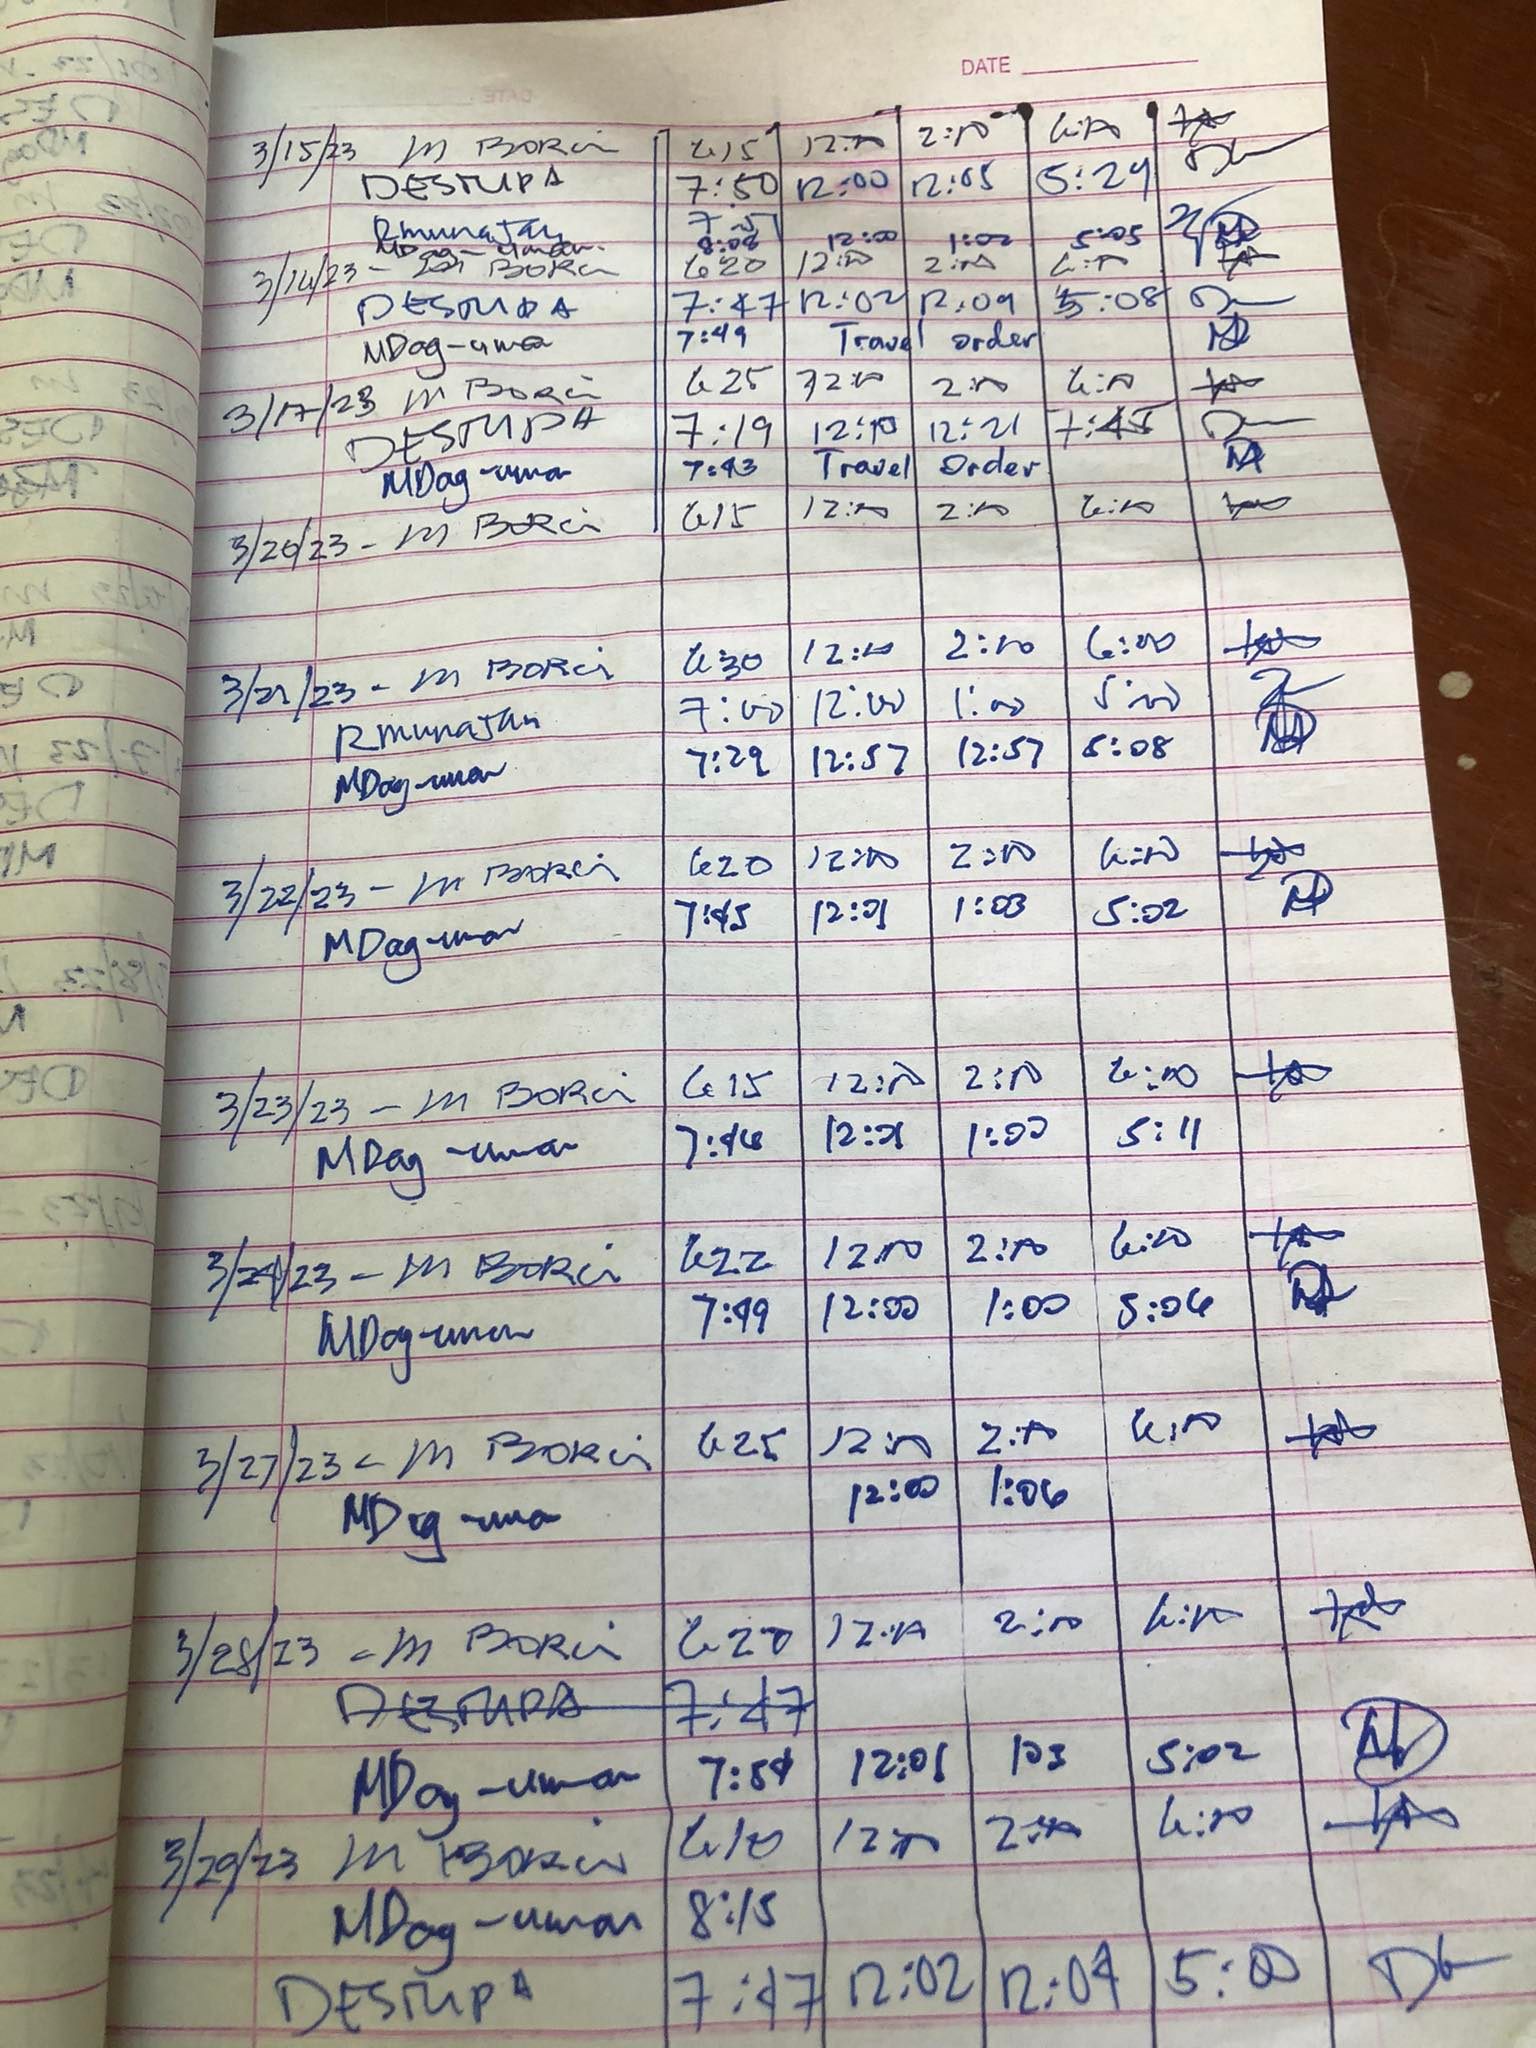 DATE
3/15/23 M BORCI 6:15 12:00 2:00 6:00
DESTUPA 7:50 12:00 12:05 5:24
RMUNAJAN
MDag-uman 8:08 12:00 1:02 5:05
3/16/23 - M BORCI 620 12:00 2:00 6:00
DESTUPA 7:47 12:02 12:09 5:08
MDag-uman 7:49 Travel order
3/17/23 M BORCI 625 12:00 2:00 6:00
DESTUPA 7:19 12:10 12:21 7:45
MDag-uman 7:43 Travel Order
3/20/23 - M BORCI 615 12:00 2:00 6:00
3/21/23 - M BORCI 630 12:00 2:00 6:00
RMUNAJAN 7:00 12:00 1:00 5:00
MDag-uman 7:29 12:57 12:57 5:08
3/22/23 - M BORCI 620 12:00 2:00 6:00
MDag-uman 7:45 12:01 1:03 5:02
3/23/23 - M BORCI 615 12:00 2:00 6:00
MDag-uman 7:46 12:01 1:00 5:11
3/24/23 - M BORCI 622 12:00 2:00 6:00
MDag-uman 7:49 12:00 1:00 5:06
3/27/23 - M BORCI 625 12:00 2:00 6:00
MDag-uman 12:00 1:06
3/28/23 - M BORCI 620 12:00 2:00 6:00
DESTUPA 7:47
MDag-uman 7:54 12:01 103 5:02
3/29/23 M BORCI 610 12:00 2:00 6:00
MDag-uman 8:15
DESTUPA 7:47 12:02 12:04 5:00